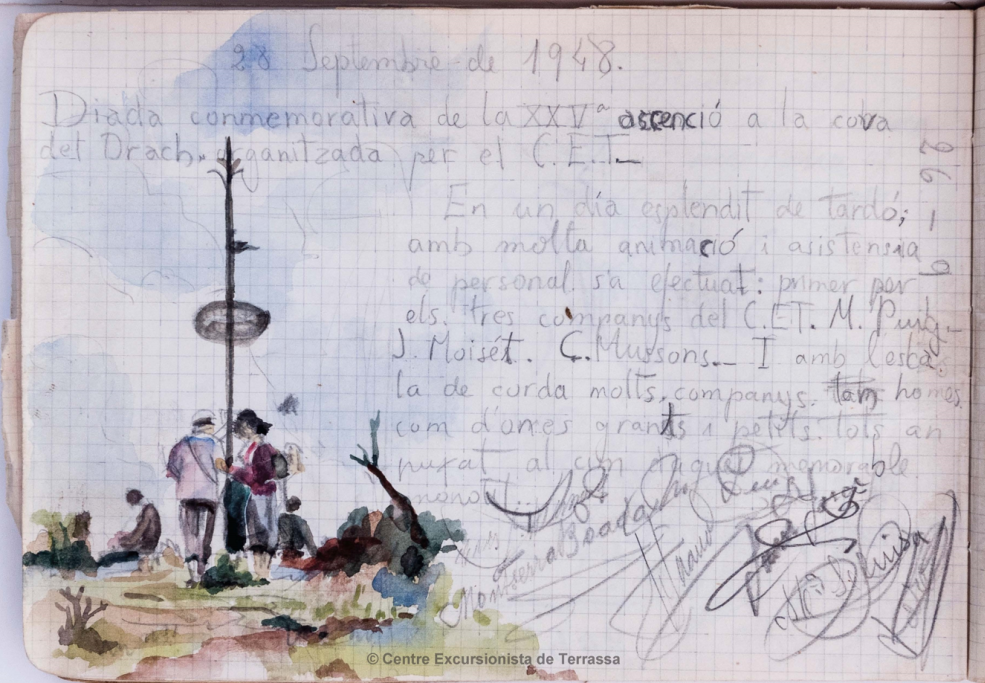 28 Septembre de 1948.
Diada conmemorativa de la XXVª ascenció a la cova
del Drach. organitzada per el C.E.T.
En un dia esplendit de tardó;
amb molta animació i asistensia
de personal s'a efectuat: primer per
els. tres companys del C.E.T. M. Puig.
J. Moisét. C. Mussons. I amb l'esca-
la de corda molts, companys. tan homes
com d'ones grants i petits. tots an
pujat al cim memorable
Montserrat Boada
Mª Lluisa
© Centre Excursionista de Terrassa